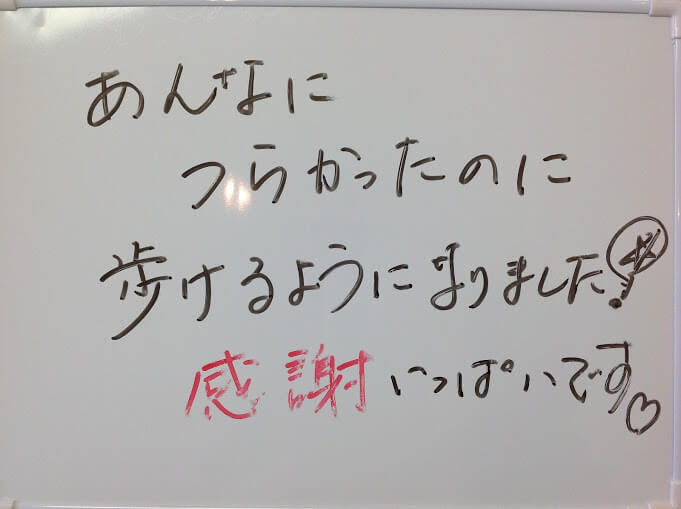 あんなに
つらかったのに
歩けるようになりました!
感謝いっぱいです♡